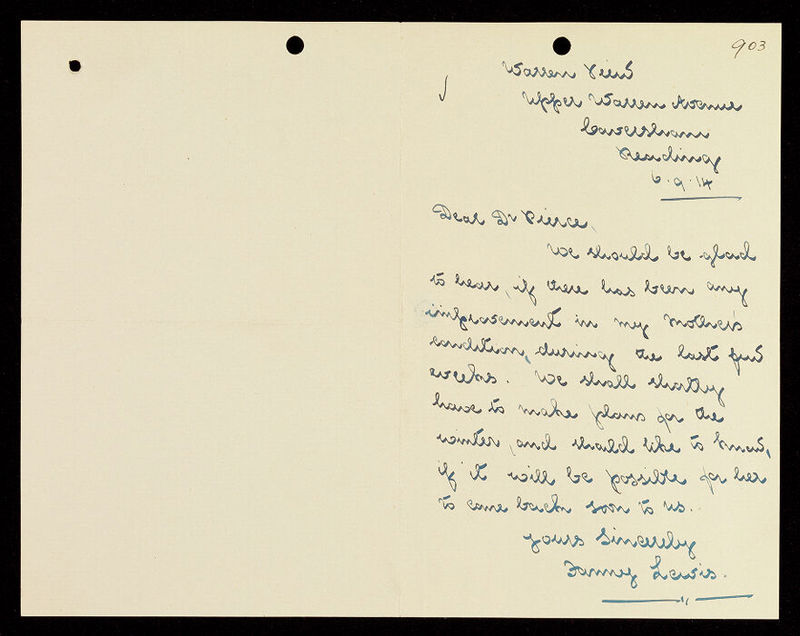 903
Warren View
Upper Warren Avenue
Caversham
Reading
6.9.14
Dear Dr Pierce,
We should be glad
to hear, if there has been any
improvement in my Mother's
condition, during the last few
weeks. We shall shortly
have to make plans for the
winter, and should like to know,
if it will be possible for her
to come back soon to us.
Yours Sincerely
Fanny Lewis.